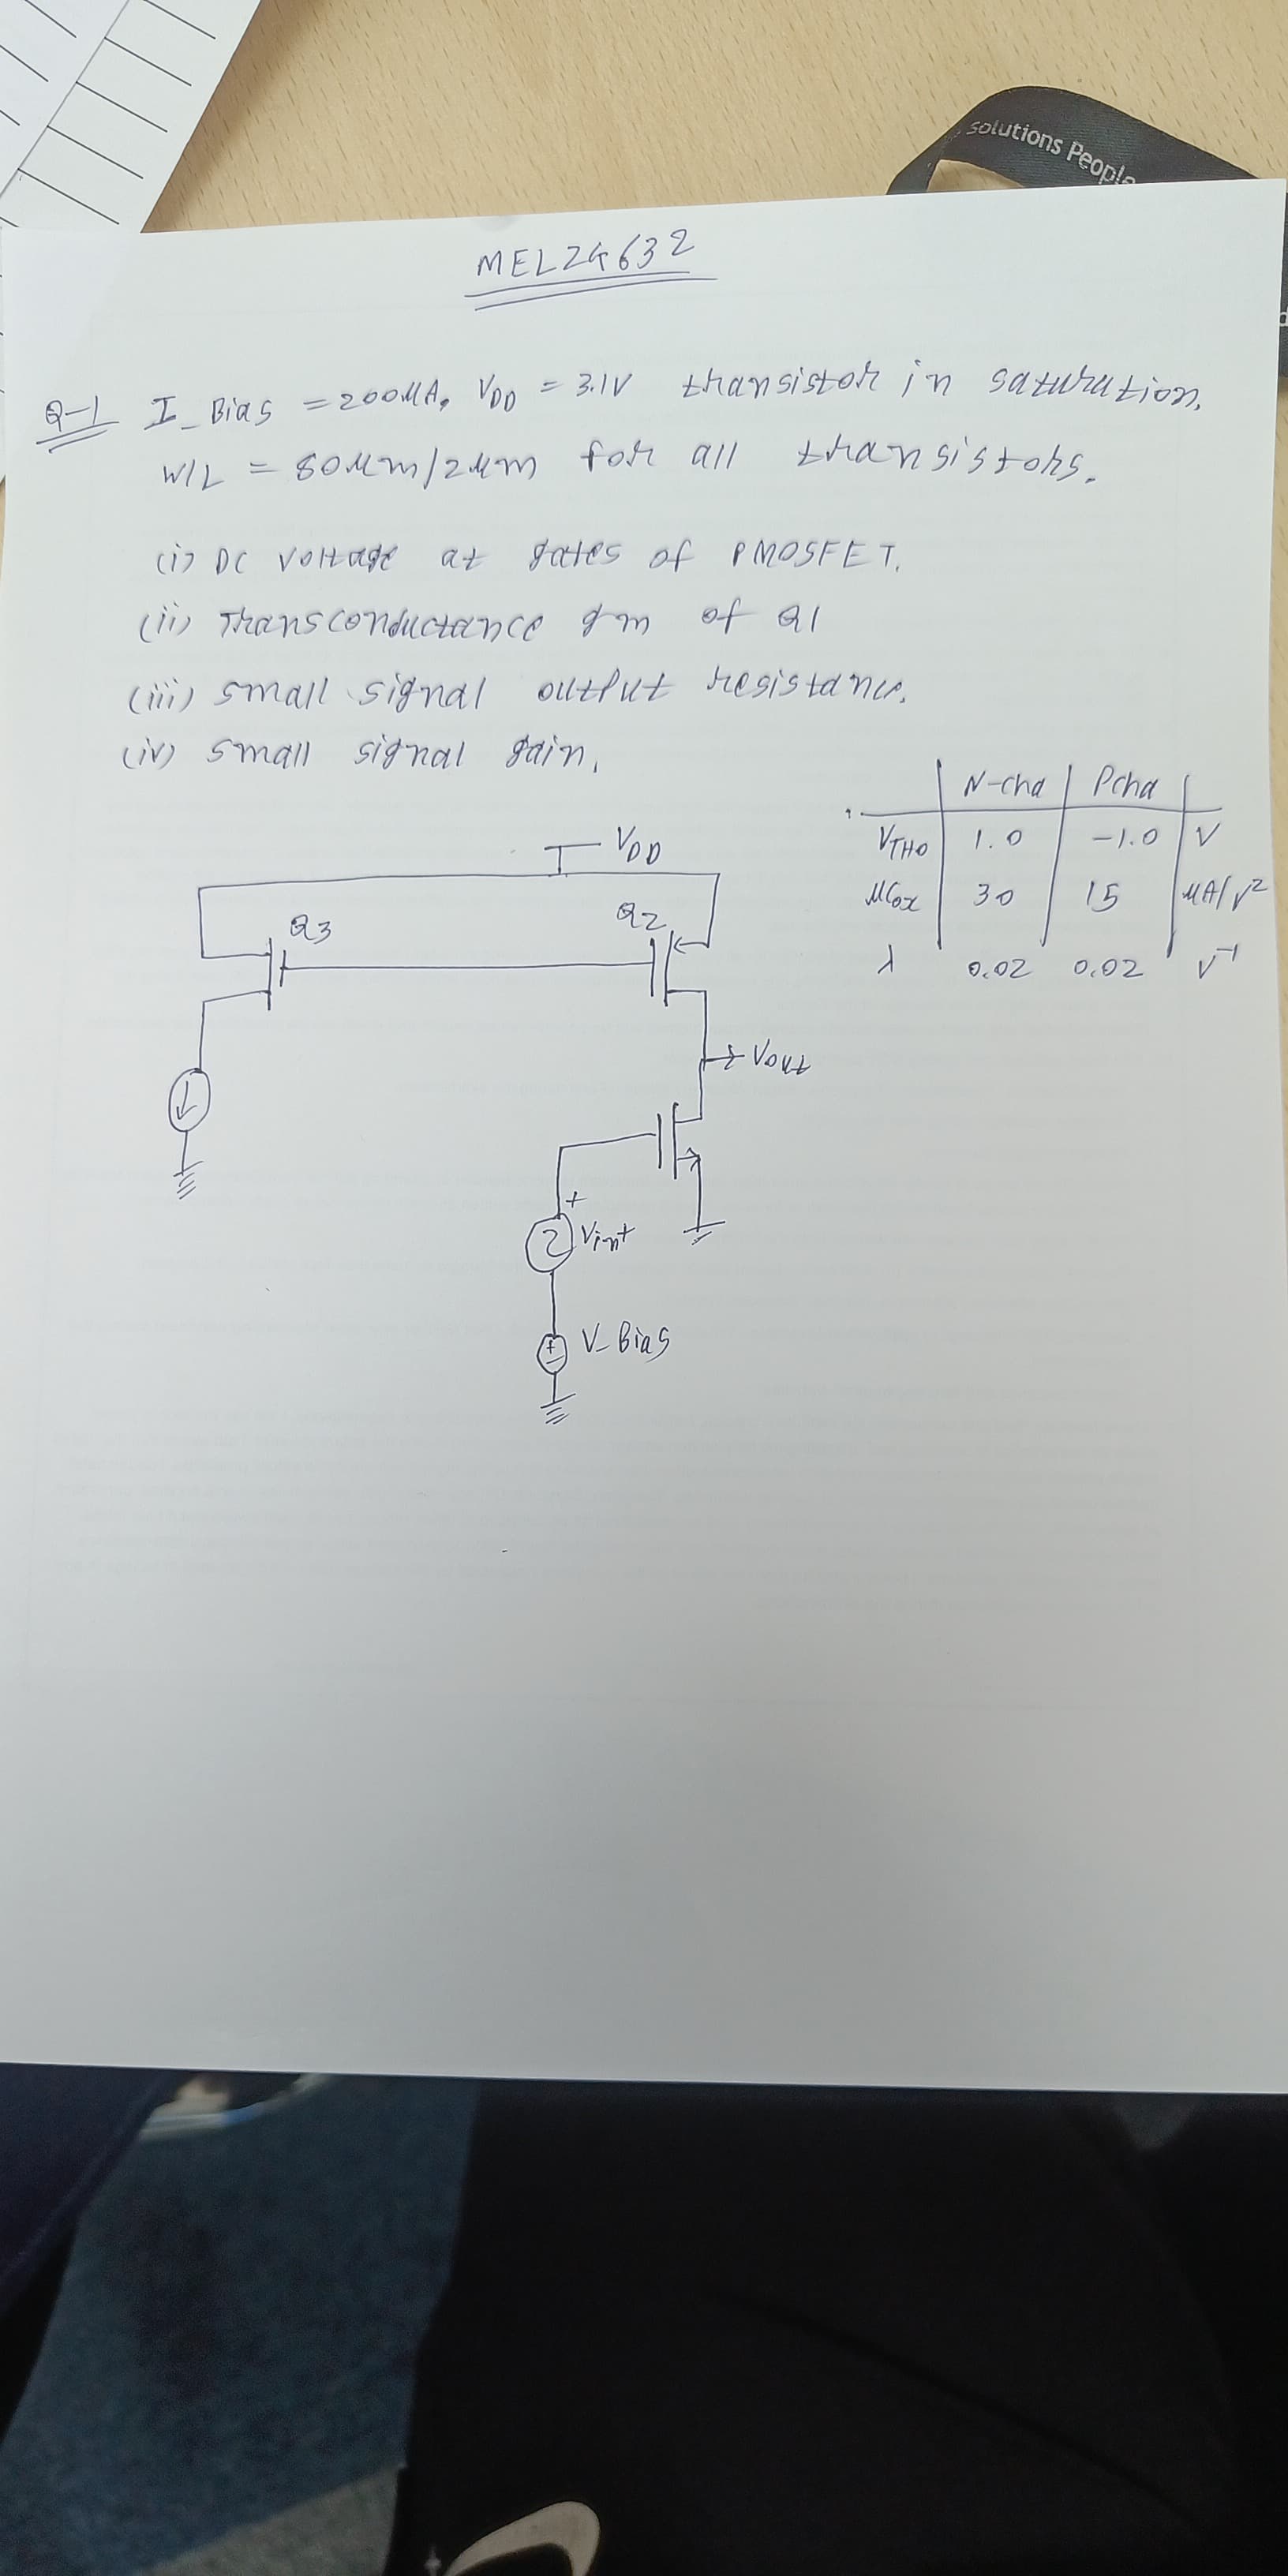 Solutions People
MELZG632
Q-1 I_Bias = 200μA, VDD = 3.1V transistor in saturation.
W/L = 80μm/2μm for all transistors.
(i) DC voltage at gates of PMOSFET.
(ii) Transconductance gm of Q1
(iii) small signal output resistance.
(iv) small signal gain.
N-cha Pcha
VTHO 1.0 -1.0 V
μCox 30 15 μA/V²
λ 0.02 0.02 V⁻¹
VDD
Q3 Q2
Vout
+
Vin+
+
-
V_Bias